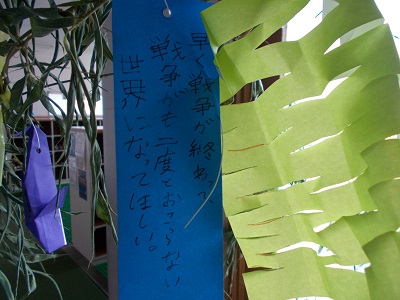 早く戦争が終わって、
戦争がもう二度とおこらない
世界になってほしい。